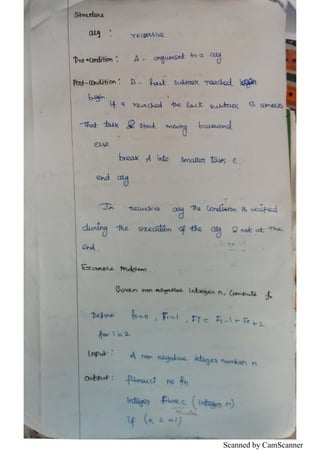 Structure
alg : recursive
Pre-condition : A - argument to a alg
Post-condition : B - last subtask reached
begin
if a reached the last subtask B
That task & start moving backward
else
break A into smaller task C
end alg
In recursive alg the condition is verified
during the execution of the alg & not at the
end.
Example Problem
Given non negative integer n, Compute fn
Define f0=0, F1=1, Fi = Fi-1 + Fi+2
for i=2
Input : A non negative integer number n
output : fibnacci no fn
Integer (Integer n)
if (n <=1)
Scanned by CamScanner